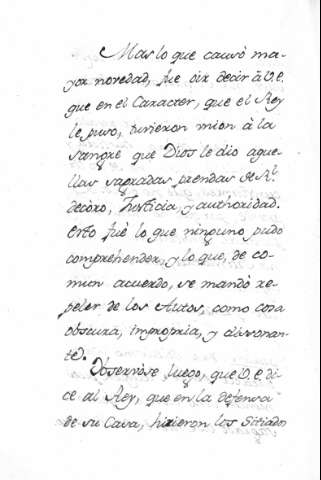 Mas lo que causò ma-
yor novedad, fue oir decir à V.e.
que en el Caracter, que el Rey
le puso, tuvieron mion à la
sangre que Dios le dio aque-
llas sagradas prendas de Rl.
decoro, Justicia, y authoridad.
Esto fuè lo que ninguno pudo
comprehender, y lo que, de co-
mun acuerdo, se mandò re-
peler de los Autos, como cosa
obscura, impropria, y dissonan-
te.
Observòse luego, que V.e. di-
ce al Rey, que en la defensa
de su Casa, hizieron los Sitiados